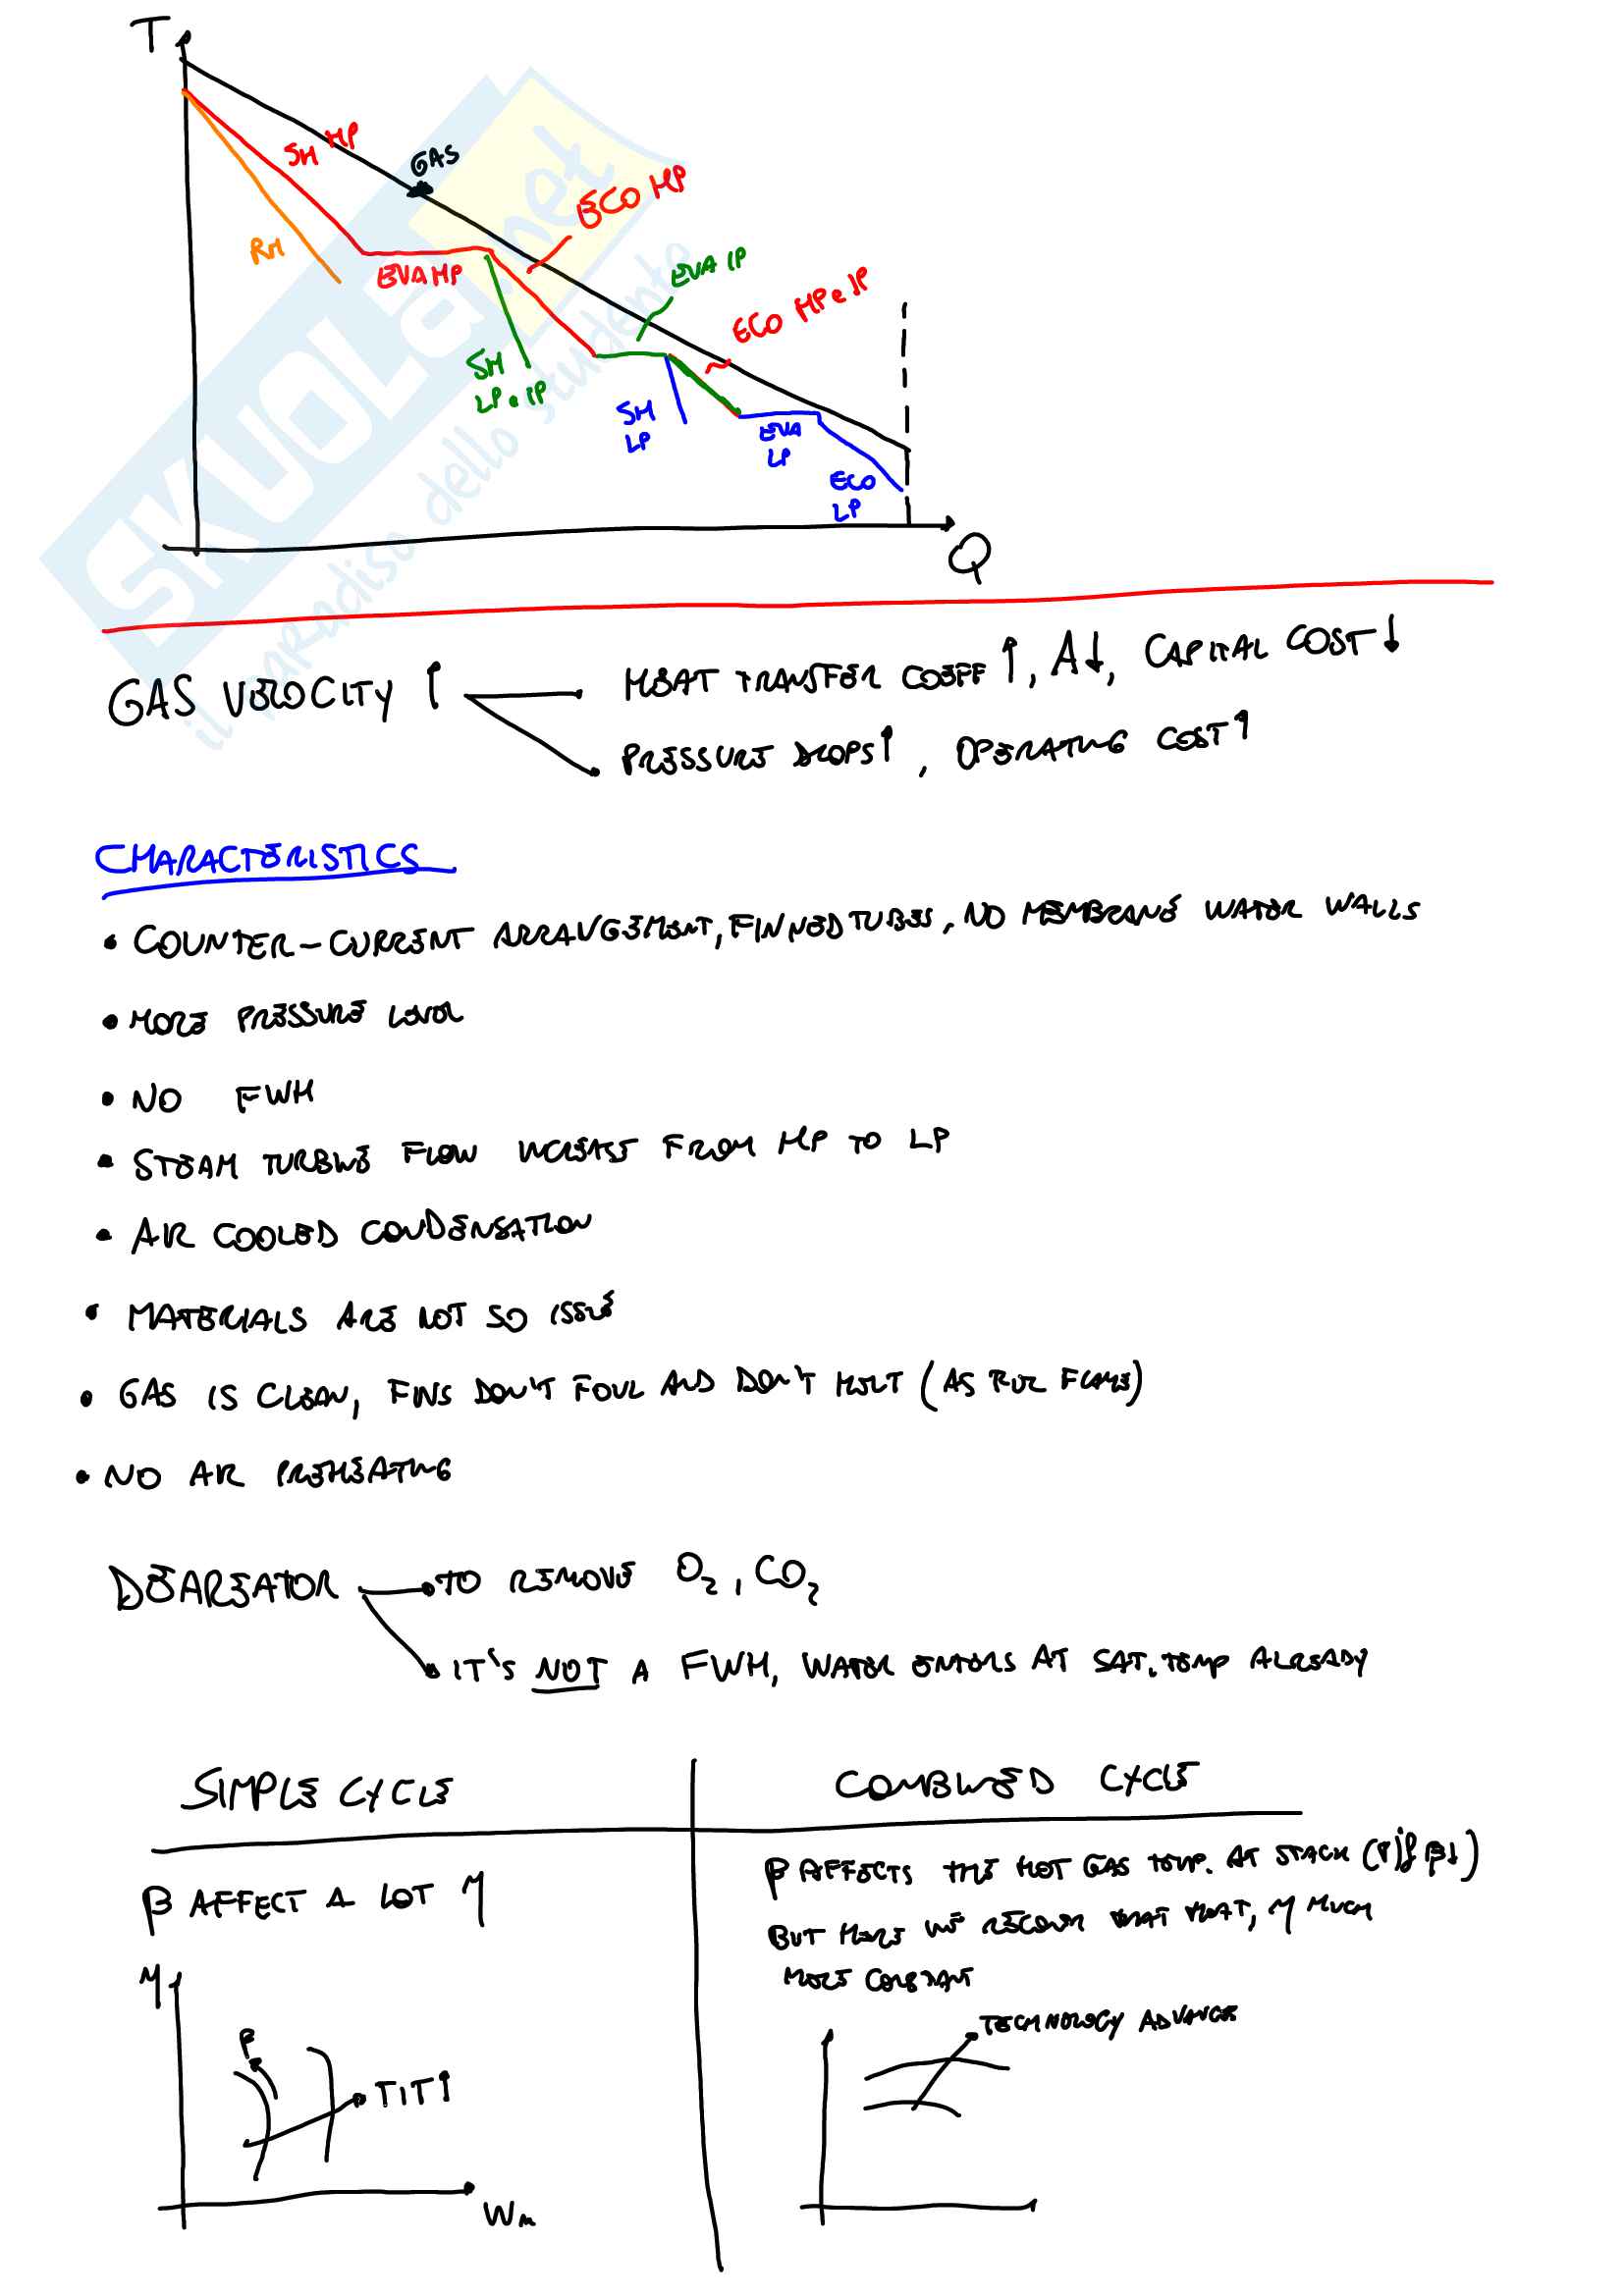 T
SH HP
GAS
ECO HP
RH
EVA HP
EVA IP
ECO HP e IP
SH
LP e IP
SH
LP
EVA
LP
ECO
LP
Q
SKUOLA.net
il paradiso dello studente
GAS VELOCITY ↑ HEAT TRANSFER COEFF ↑, A↓, CAPITAL COST ↓
PRESSURE DROPS ↑, OPERATING COST ↑
CHARACTERISTICS
• COUNTER-CURRENT ARRANGEMENT, FINNED TUBES, NO MEMBRANE WATER WALLS
• MORE PRESSURE LEVEL
• NO FWH
• STEAM TURBINE FLOW INCREASE FROM HP TO LP
• AIR COOLED CONDENSATION
• MATERIALS ARE NOT SO ISSUE
• GAS IS CLEAN, FINS DON'T FOUL AND DON'T MELT (AS FOR FLAME)
• NO AIR PREHEATING
DEAREATOR → TO REMOVE O₂, CO₂
IT'S NOT A FWH, WATER ENTERS AT SAT. TEMP ALREADY
SIMPLE CYCLE
COMBINED CYCLE
β AFFECT A LOT η
β AFFECTS THE HOT GAS TEMP. AT STACK (↑ if β↓)
BUT HERE WE RECOVER THAT HEAT, η MUCH
MORE CONSTANT
η
β
TIT↑
Wₙ
TECHNOLOGY ADVANCE